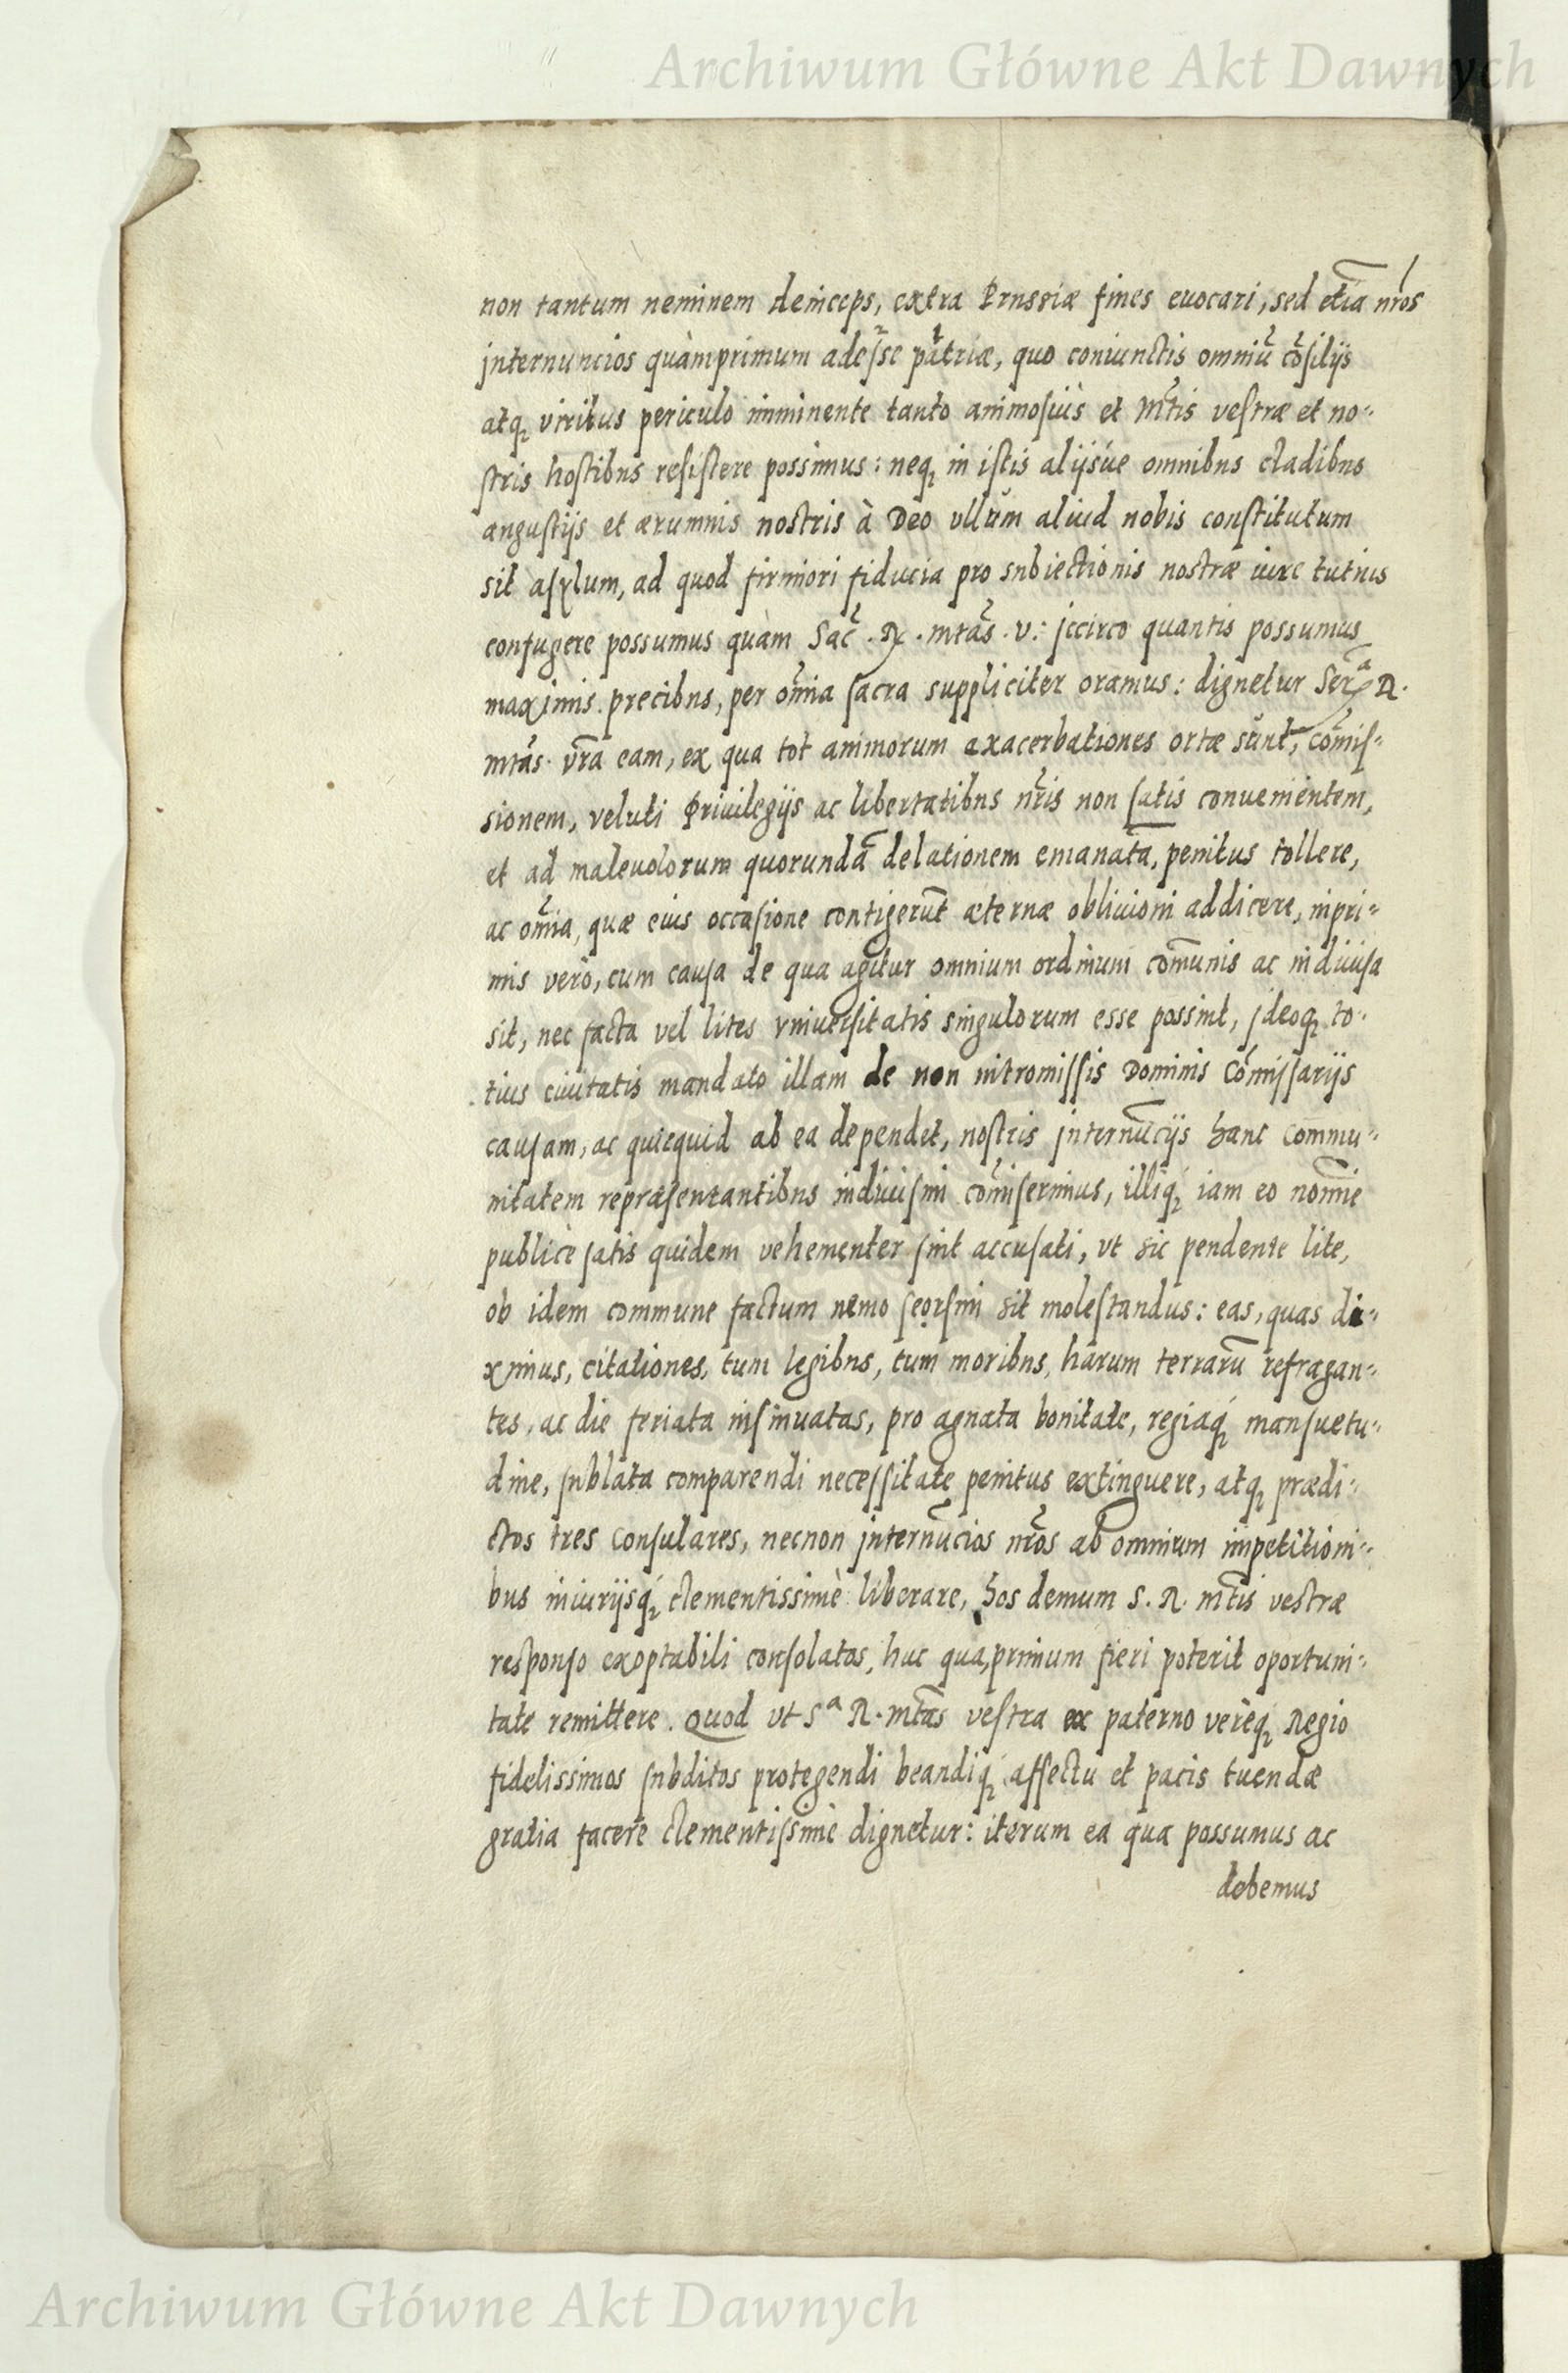 Archiwum Główne Akt Dawnych
non tantum neminem deinceps, extra Prussiæ fines euocari, sed etiã nr̃os
internuncios quàmprimum adesse patriæ, quo coniunctis omniũ cõsilijs
atq; viribus periculo imminente tanto animosiùs et Mtis vestræ et no-
stris hostibus resistere possimus: neq; in istis alijsúe omnibus cladibus
angustijs et ærumnis nostris à Deo vllum aliud nobis constitutum
sit asylum, ad quod firmiori fiducia pro subiectionis nostræ iure tutius
confugere possumus quàm Sac̃. R. mtas̃. v.: jccirco quantis possumus
maximis precibus, per om̃ia sacra suppliciter oramus: dignetur Serᵃ R.
mtas̃. vr̃a eam, ex qua tot animorum exacerbationes ortæ sunt, com̃is-
sionem, veluti Priuilegijs ac libertatibus nr̃is non satis conuenientem,
et ad maleuolorum quorundã delationem emanatã, penitus tollere,
ac om̃ia, quæ eius occasione contigerũt æternæ obliuioni addicere, inpri-
mis verò, cum causa de qua agitur omnium ordinum com̃unis ac indiuisa
sit, nec facta vel lites vniuersitatis singulorum esse possint, jdeoq; to-
tius ciuitatis mandato illam de non intromissis Dominis Com̃issarijs
causam, ac quicquid ab ea dependet, nostris internũcijs hanc commu-
nitatem repræsentantibus indiuisim com̃iserimus, illiq; iam eo nomĩe
publicè satis quidem vehementer sint accusati, vt sic pendente lite,
ob idem commune factum nemo seorsim sit molestandus: eas, quas di-
ximus, citationes, tum legibus, tum moribus, harum terrarũ refragan-
tes, ac die feriata insinuatas, pro agnata bonitate, regiaq; mansuetu-
dine, sublata comparendi necessitate penitus extinguere, atq; prædi-
ctos tres Consulares, necnon jnternũcios nr̃os ab omnium impetitioni-
bus iniurijsq; clementissimè liberare, hos demum S. R. mtis̃ vestræ
responso exoptabili consolatos, huc quamprimum fieri poterit oportuni-
tate remittere. Quod vt Sᵃ R. mtas̃ vestra ex paterno verèq; Regio
fidelissimos subditos protegendi beandiq; affectu et pacis tuendæ
gratia facere clementissimè dignetur: iterum ea qua possumus ac
debemus
Archiwum Główne Akt Dawnych